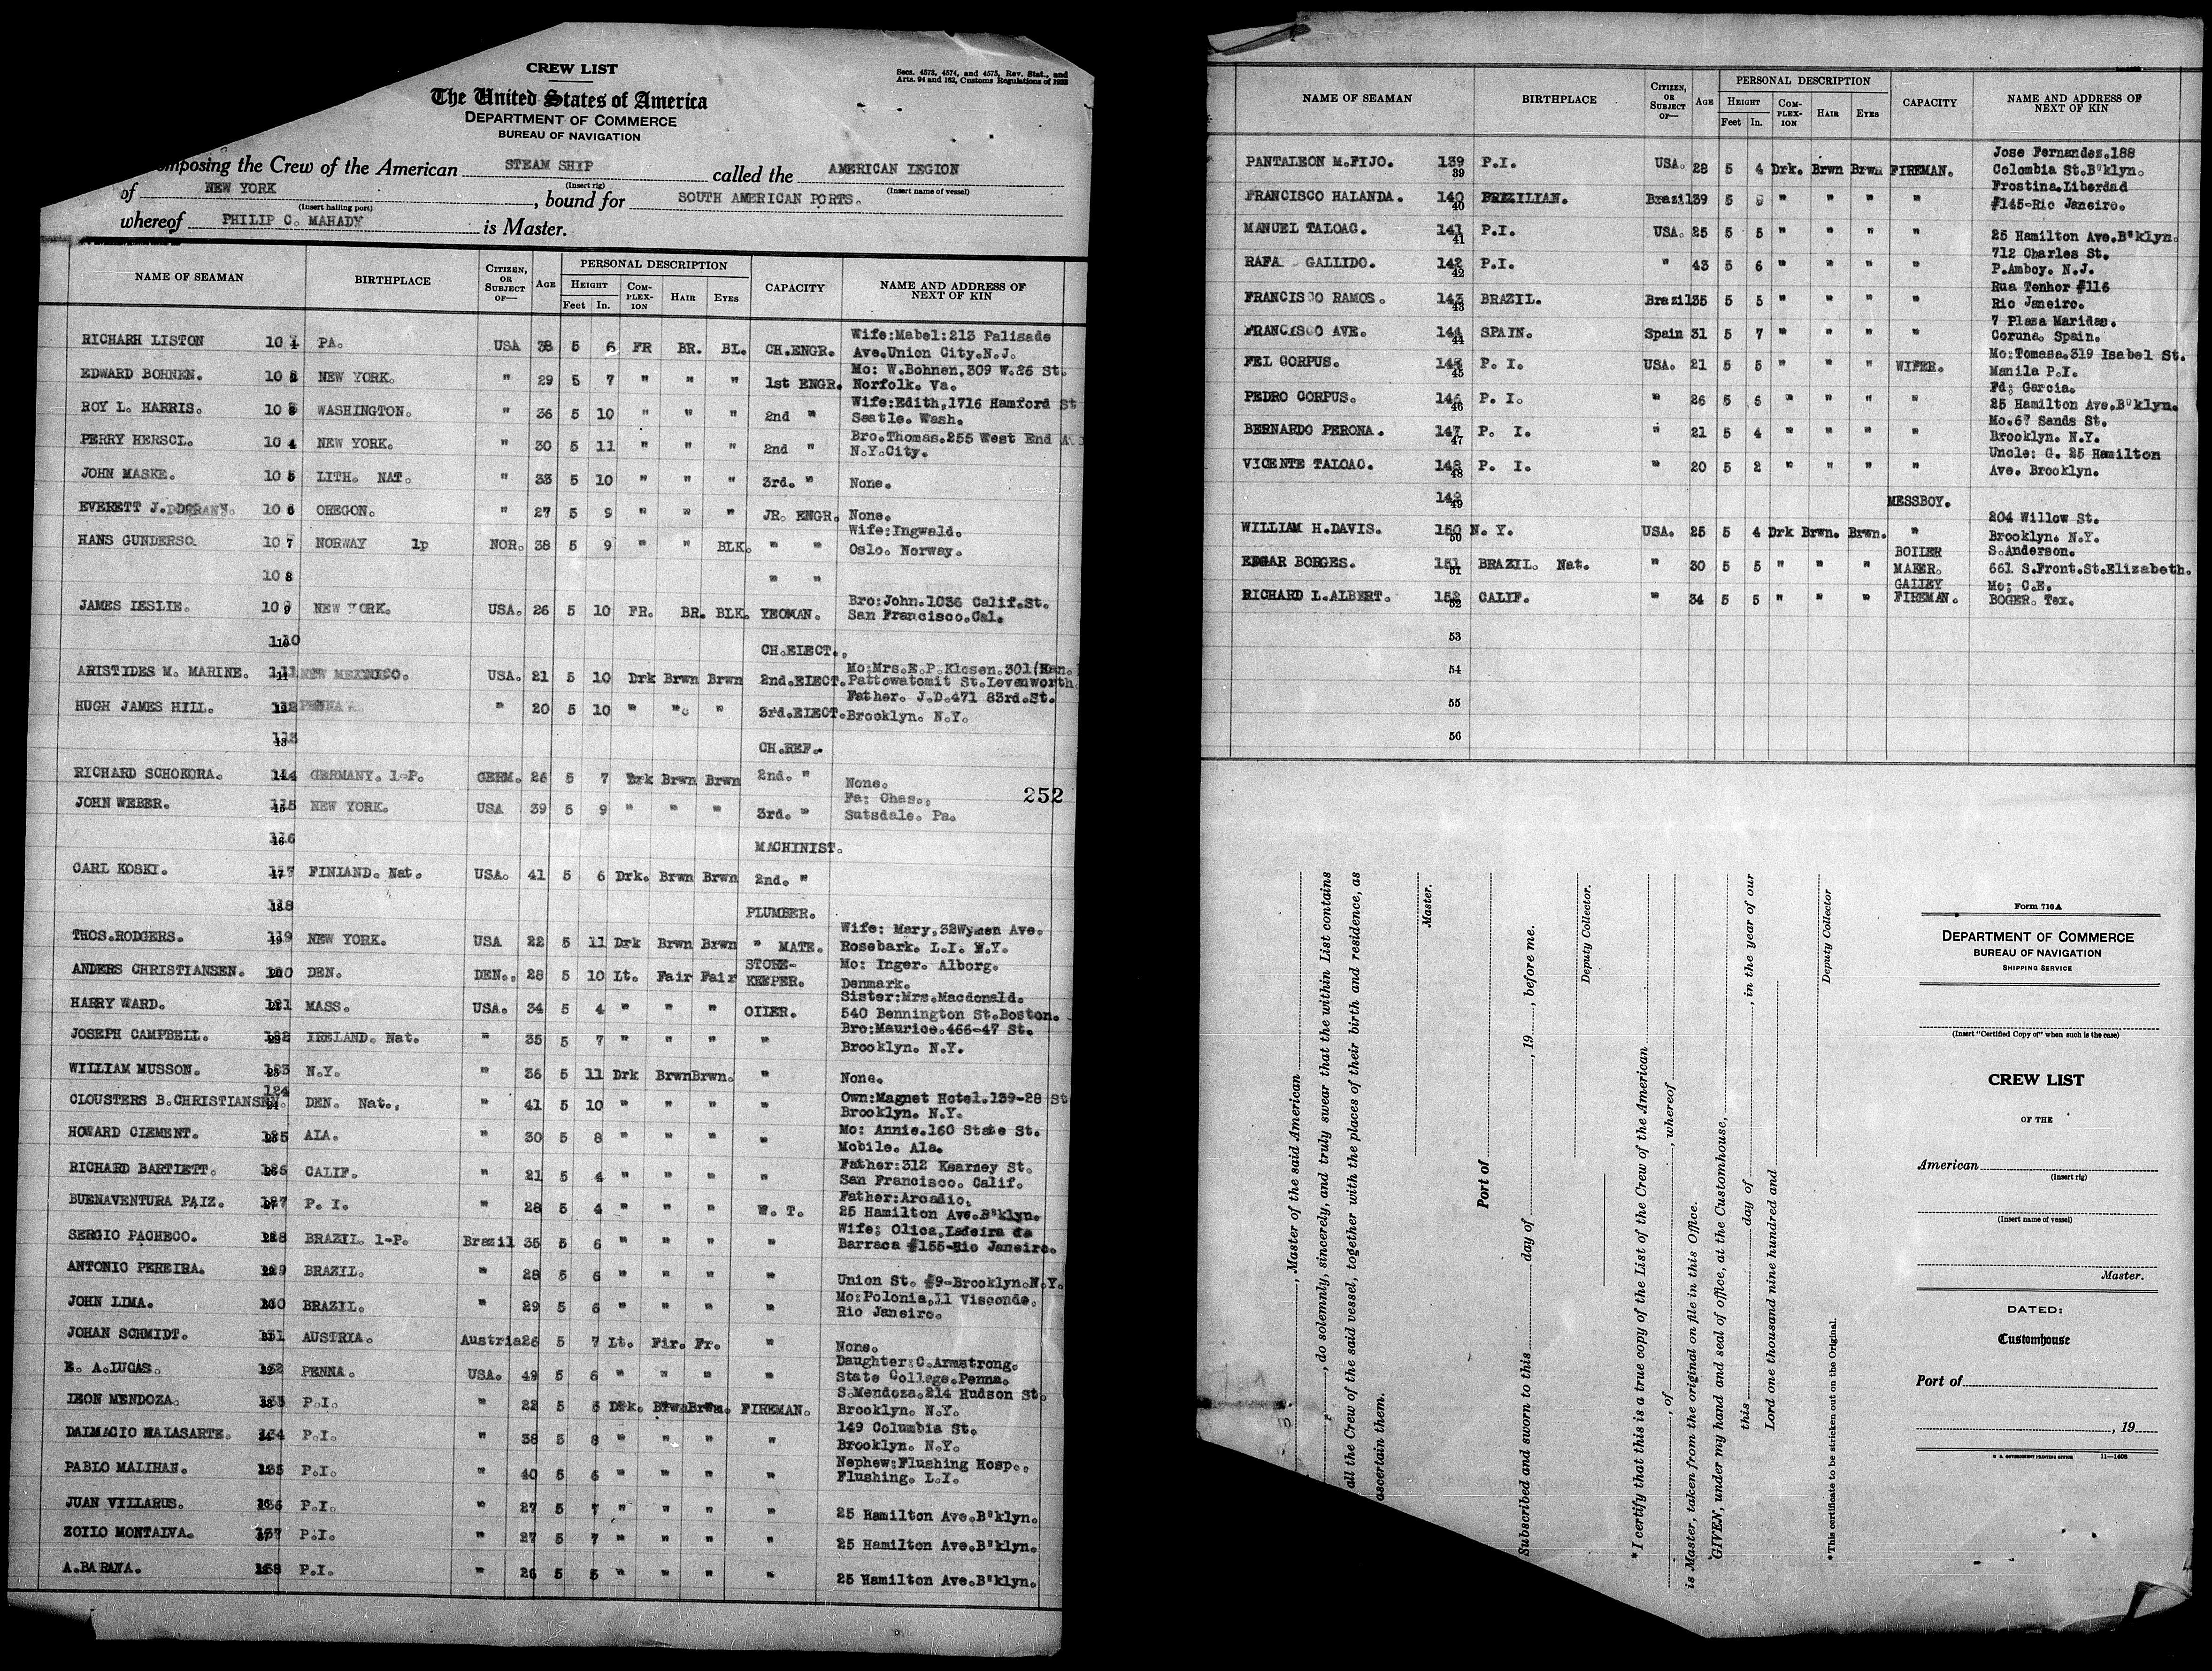 CREW LIST
Secs. 4573, 4574, and 4575, Rev. Stat., and
Arts. 94 and 162, Customs Regulations of 1923
The United States of America
DEPARTMENT OF COMMERCE
BUREAU OF NAVIGATION
mposing the Crew of the American STEAM SHIP called the AMERICAN LEGION
(Insert rig) (Insert name of vessel)
of NEW YORK, bound for SOUTH AMERICAN PORTS.
(Insert hailing port)
whereof PHILIP C. MAHADY is Master.
NAME OF SEAMAN BIRTHPLACE CITIZEN, OR SUBJECT OF— AGE PERSONAL DESCRIPTION CAPACITY NAME AND ADDRESS OF NEXT OF KIN
HEIGHT Feet In. COM-PLEX-ION HAIR EYES
RICHARH LISTON 10 1 PA. USA 38 5 6 FR BR. BL. CH.ENGR. Wife:Mabel:213 Palisade
Ave.Union City.N.J.
EDWARD BOHNEN. 10 2 NEW YORK. " 29 5 7 " " " 1st ENGR. Mo: W.Bohnen,309 W.26 St.
Norfolk. Va.
ROY L. HARRIS. 10 3 WASHINGTON. " 36 5 10 " " " 2nd " Wife:Edith,1716 Hamford St
Seatle. Wash.
PERRY HERSCL. 10 4 NEW YORK. " 30 5 11 " " " 2nd " Bro.Thomas.255 West End A
N.Y.City.
JOHN MASKE. 10 5 LITH. NAT. " 33 5 10 " " " 3rd. " None.
EVERETT J. 10 6 OREGON. " 27 5 9 " " " JR. ENGR. None.
HANS GUNDERSO. 10 7 NORWAY 1p NOR. 38 5 9 " " BLK. " " Wife:Ingwald.
Oslo. Norway.
10 8 " "
JAMES LESLIE. 10 9 NEW YORK. USA. 26 5 10 FR. BR. BLK. YEOMAN. Bro:John.1036 Calif.St.
San Francisco.Cal.
110 CH.ELECT.,
ARISTIDES M. MARINE. 111 NEW USA. 21 5 10 Drk Brwn Brwn 2nd.ELECT. Mo:Mrs.E.P.Klosen.301(Kan.
Pattowatomit St.Levenworth.
HUGH JAMES HILL. 112 PENNA. " 20 5 10 " " " 3rd.ELECT. Father. J.D.471 83rd.St.
Brooklyn. N.Y.
113 CH.REF.
RICHARD SCHOKORA. 114 GERMANY. 1-P. GERM. 26 5 7 Drk Brwn Brwn 2nd. " None.
JOHN WEBER. 115 NEW YORK. USA 39 5 9 " " " 3rd. " Fa: Chas.,
Sutsdale. Pa.
252
116 MACHINIST.
CARL KOSKI. 117 FINLAND. Nat. USA. 41 5 6 Drk. Brwn Brwn 2nd. "
118 PLUMBER.
THOS.RODGERS. 119 NEW YORK. USA 22 5 11 Drk Brwn Brwn " MATE. Wife: Mary,32Wymen Ave.
Rosebark. L.I. N.Y.
ANDERS CHRISTIANSEN. 120 DEN. DEN., 28 5 10 Lt. Fair Fair STORE-KEEPER. Mo: Inger. Alborg.
Denmark.
HARRY WARD. 121 MASS. USA. 34 5 4 " " " OILER. Sister:Mrs.Macdonald.
540 Bennington St.Boston.
JOSEPH CAMPBELL. 122 IRELAND. Nat. " 35 5 7 " " " " Bro:Maurice.466-47 St.
Brooklyn. N.Y.
WILLIAM MUSSON. 123 N.Y. " 36 5 11 Drk Brwn Brwn. " None.
CLOUSTERS B.CHRISTIANSEN. 124 DEN. Nat., " 41 5 10 " " " " Own:Magnet Hotel.139-28 St
Brooklyn. N.Y.
HOWARD CLEMENT. 125 ALA. " 30 5 8 " " " " Mo: Annie.160 State St.
Mobile. Ala.
RICHARD BARTLETT. 126 CALIF. " 21 5 4 " " " " Father:312 Kearney St.
San Francisco. Calif.
BUENAVENTURA PAIZ. 127 P. I. " 28 5 4 " " " W. T. Father:Arcadio.
25 Hamilton Ave.B'klyn.
SERGIO PACHECO. 128 BRAZIL. 1-P. Brazil 35 5 6 " " " " Wife; Olica,Ladeira da
Barraca #155-Rio Janeiro.
ANTONIO PEREIRA. 129 BRAZIL. " 28 5 6 " " " " Union St. #9-Brooklyn.N.Y.
JOHN LIMA. 130 BRAZIL. " 29 5 6 " " " " Mo:Polonia,31 Visconde.
Rio Janeiro.
JOHAN SCHMIDT. 131 AUSTRIA. Austria 26 5 7 Lt. Fir. Fr. " None.
E. A.LUCAS. 132 PENNA. USA. 49 5 6 " " " " Daughter:C.Armstrong.
State College.Penna.
LEON MENDOZA. 133 P.I. " 22 5 5 Drk. Brwn Brwn. FIREMAN. S.Mendoza.214 Hudson St.
Brooklyn. N.Y.
DALMACIO MALASARTE. 134 P.I. " 38 5 8 " " " " 149 Columbia St.
Brooklyn. N.Y.
PABLO MALIHAN. 135 P.I. " 40 5 6 " " " " Nephew:Flushing Hosp.,
Flushing. L.I.
JUAN VILLARUS. 136 P.I. " 27 5 7 " " " " 25 Hamilton Ave.B'klyn.
ZOILO MONTALVA. 137 P.I. " 27 5 7 " " " " 25 Hamilton Ave.B'klyn.
A.BABANA. 138 P.I. " 26 5 5 " " " " 25 Hamilton Ave.B'klyn.
NAME OF SEAMAN BIRTHPLACE CITIZEN, OR SUBJECT OF— AGE PERSONAL DESCRIPTION CAPACITY NAME AND ADDRESS OF NEXT OF KIN
HEIGHT Feet In. COM-PLEX-ION HAIR EYES
PANTALEON M.FIJO. 139 39 P.I. USA. 28 5 4 Drk. Brwn Brwn FIREMAN. Jose Fernandez.188
Colombia St.B'klyn.
FRANCISCO HALANDA. 140 40 BRAZILIAN. Brazil 39 5 " " " " Frostina.Liberdad
#145-Rio Janeiro.
MANUEL TALOAC. 141 41 P.I. USA. 25 5 5 " " " " 25 Hamilton Ave.B'klyn.
RAFA GALLIDO. 142 42 P.I. " 43 5 6 " " " " 712 Charles St.
P.Amboy. N.J.
FRANCISCO RAMOS. 143 43 BRAZIL. Brazil 35 5 5 " " " " Rua Tenhor #116
Rio Janeiro.
FRANCISCO AVE. 144 44 SPAIN. Spain 31 5 7 " " " " 7 Plaza Maridas.
Coruna. Spain.
FEL CORPUS. 145 45 P. I. USA. 21 5 5 " " " WIPER. Mo:Tomasa.319 Isabel St.
Manila P.I.
PEDRO CORPUS. 146 46 P. I. " 26 5 5 " " " " Fd; Garcia.
25 Hamilton Ave.B'klyn.
BERNARDO PERONA. 147 47 P. I. " 21 5 4 " " " " Mo.67 Sands St.
Brooklyn. N.Y.
VICENTE TALOAC. 148 48 P. I. " 20 5 2 " " " " Uncle: G. 25 Hamilton
Ave. Brooklyn.
149 49 MESSBOY.
WILLIAM H.DAVIS. 150 50 N. Y. USA. 25 5 4 Drk Brwn. Brwn. " 204 Willow St.
Brooklyn. N.Y.
EDGAR BORGES. 151 51 BRAZIL. Nat. " 30 5 5 " " " BOILER MAKER. S.Anderson.
661 S.Front.St.Elizabeth.
RICHARD L.ALBERT. 152 52 CALIF. " 34 5 5 " " " GALLEY FIREMAN. Mo; C.E.
BOGER. Tex.
53
54
55
56
, Master of the said American
, do solemnly, sincerely, and truly swear that the within List contains
all the Crew of the said vessel, together with the places of their birth and residence, as
ascertain them.
Master.
Port of
Subscribed and sworn to this day of , 19 , before me.
Deputy Collector.
*I certify that this is a true copy of the List of the Crew of the American
, of , whereof
is Master, taken from the original on file in this Office.
GIVEN, under my hand and seal of office, at the Customhouse,
this day of , in the year of our
Lord one thousand nine hundred and
Deputy Collector
*This certificate to be stricken out on the Original.
Form 710A
DEPARTMENT OF COMMERCE
BUREAU OF NAVIGATION
SHIPPING SERVICE
(Insert "Certified Copy of" when such is the case)
CREW LIST
OF THE
American
(Insert rig)
(Insert name of vessel)
Master.
DATED:
Customhouse
Port of
, 19
U. S. GOVERNMENT PRINTING OFFICE 11—1408